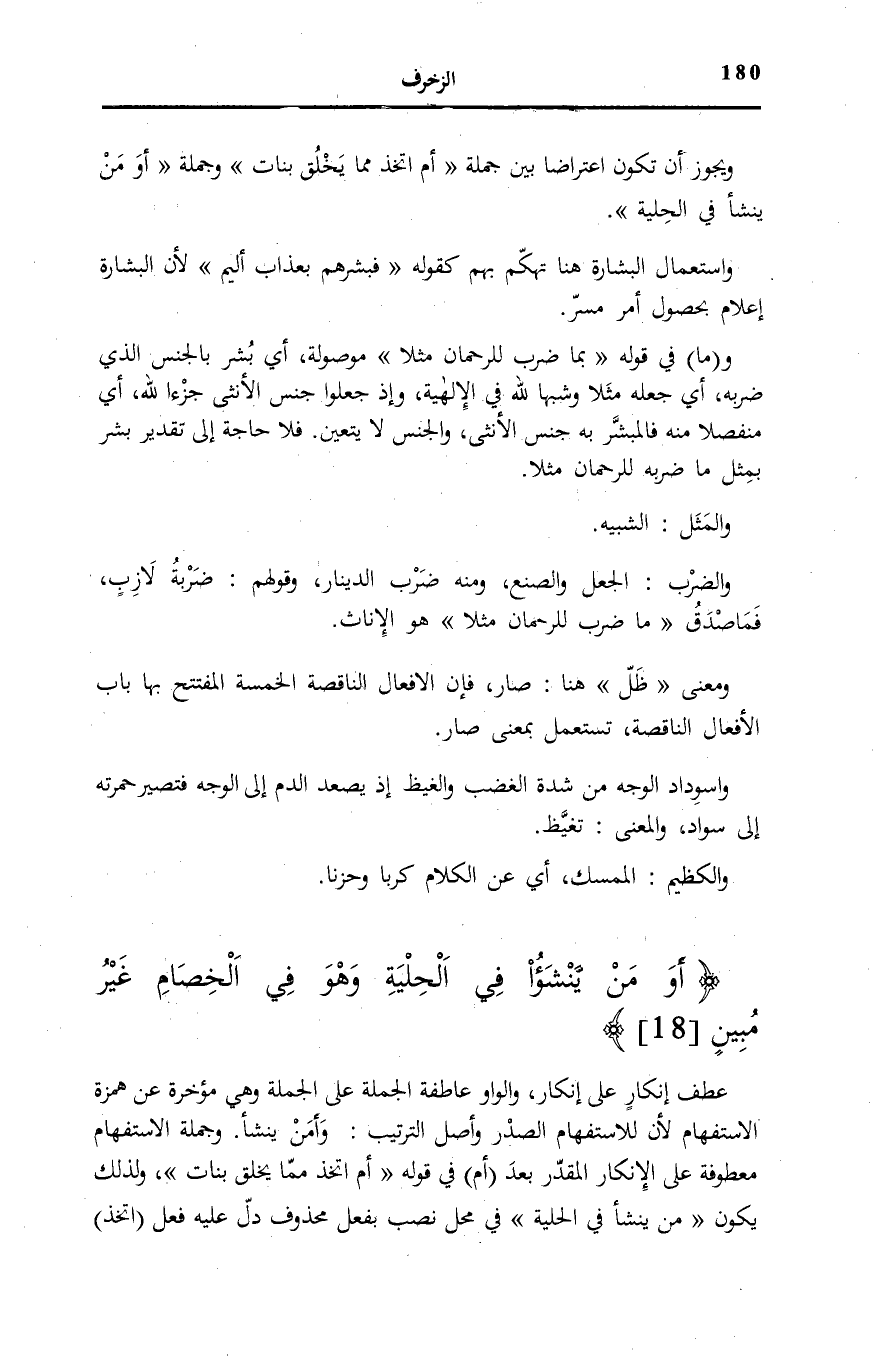 180
الزخرف
ويجوز أن تكون اعتراضا بين جملة « أم اتخذ مما يَخْلُق بنات » وجملة « أوَ مَنْ
ينشأ في الحِلية ».
واستعمال البشارة هنا تهكّم بهم كقوله « فبشرهم بعذاب أليم » لأن البشارة
إعلام بحصول أمر مسرّ.
و(ما) في قوله « بما ضرب للرحمان مثلا » موصولة، أي بُشر بالجنس الذي
ضربه، أي جعله مثَلا وشبها لله في الإِلٰهية، وإذ جعلوا جنس الأنثى جزْءا لله، أي
منفصلا منه فالمبشَّر به جنس الأنثى، والجنس لا يتعين. فلا حاجة إلى تقدير بشر
بمِثل ما ضربه للرحمان مثلا.
والمَثَل : الشبيه.
والضرْب : الجعل والصنع، ومنه ضَرْب الدينار، وقولهم : ضَرْبةُ لَازِبٍ،
فَمَاصْدَقُ « ما ضرب للرحمان مثلا » هو الإِناث.
ومعنى « ظَلّ » هنا : صار، فإن الافعال الناقصة الخمسة المفتتح بها باب
الأفعال الناقصة، تستعمل بمعنى صار.
واسوِداد الوجه من شدة الغضب والغيظ إذ يصعد الدم إلى الوجه فتصير حمرته
إلى سواد، والمعنى : تغيَّظ.
والكظيم : الممسك، أي عن الكلام كربا وحزنا.
﴿ أَوَ مَنْ يَّنْشَؤُاْ فِي اَلْحِلْيَةِ وَهْوَ فِي اَلْخِصَامِ غَيْرُ
مُبِينٍ [18] ﴾
عطف إنكارٍ على إنكار، والواو عاطفة الجملة على الجملة وهي مؤخرة عن همزة
الاستفهام لأن للاستفهام الصدْر وأصل الترتيب : وَأمَنْ ينشأ. وجملة الاستفهام
معطوفة على الإِنكار المقدّر بعدَ (أم) في قوله « أم اتخذ ممّا يخلق بنات »، ولذلك
يكون « من ينشأ في الحلية » في محل نصب بفعل محذوف دلّ عليه فعل (اتخذ)